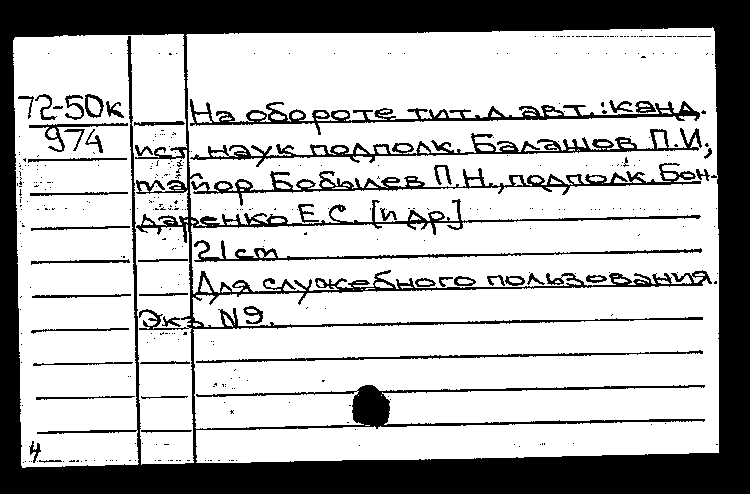 72-50к
974
На обороте тит. л. авт.: канд.
ист. наук подполк. Балашов П.И.,
майор Бобылев П.Н., подполк. Бон-
даренко Е.С. [и др.]
21 cm.
Для служебного пользования.
Экз. N9.
4